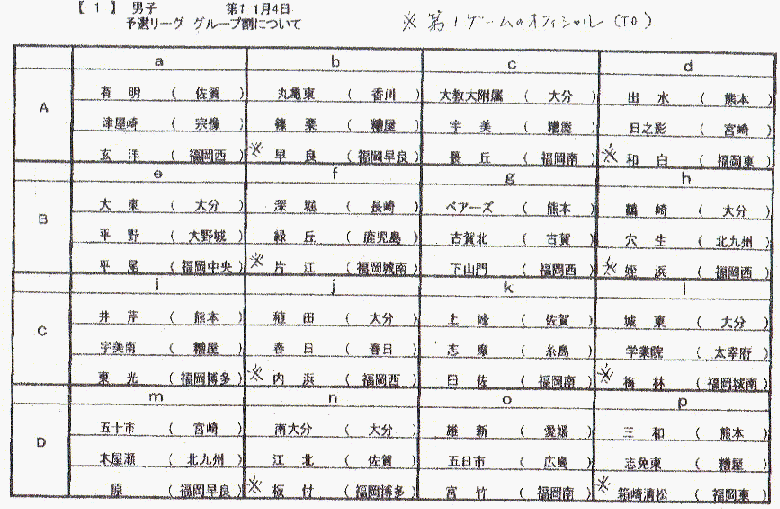 【1】 男子 第11月4日
予選リーグ グループ割について
※第1ゲームのオフィシャル(TO)
a b c d
A
有明 (佐賀) 丸亀東 (香川) 大教大附属 (大分) 出水 (熊本)
津屋崎 (宗像) 篠栗 (糟屋) 宇美 (糟屋) 日之影 (宮崎)
玄洋 (福岡西) ※早良 (福岡早良) 丘 (福岡南) ※和白 (福岡東)
e f g h
B
大東 (大分) 深堀 (長崎) ベアーズ (熊本) 鶴崎 (大分)
平野 (大野城) 緑丘 (鹿児島) 古賀北 (古賀) 穴生 (北九州)
平尾 (福岡中央) ※片江 (福岡城南) 下山門 (福岡西) ※姪浜 (福岡西)
i j k l
C
井芹 (熊本) 稙田 (大分) 上峰 (佐賀) 城東 (大分)
宇美南 (糟屋) 春日 (春日) 志摩 (糸島) 学業院 (太宰府)
東光 (福岡博多) ※内浜 (福岡西) 曰佐 (福岡南) ※梅林 (福岡城南)
m n o p
D
五十市 (宮崎) 南大分 (大分) 維新 (愛媛) 三和 (熊本)
木屋瀬 (北九州) 江北 (佐賀) 五日市 (広島) 志免東 (糟屋)
原 (福岡早良) ※板付 (福岡博多) 宮竹 (福岡南) ※箱崎清松 (福岡東)